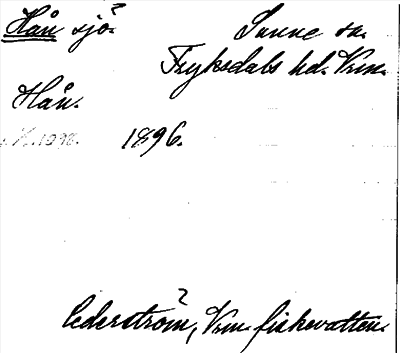 Hån sjö? Sunne sn.
Fryksdals hd. Vrm.
Hån.
1896.
Cederström, Vrm. fiskevatten.